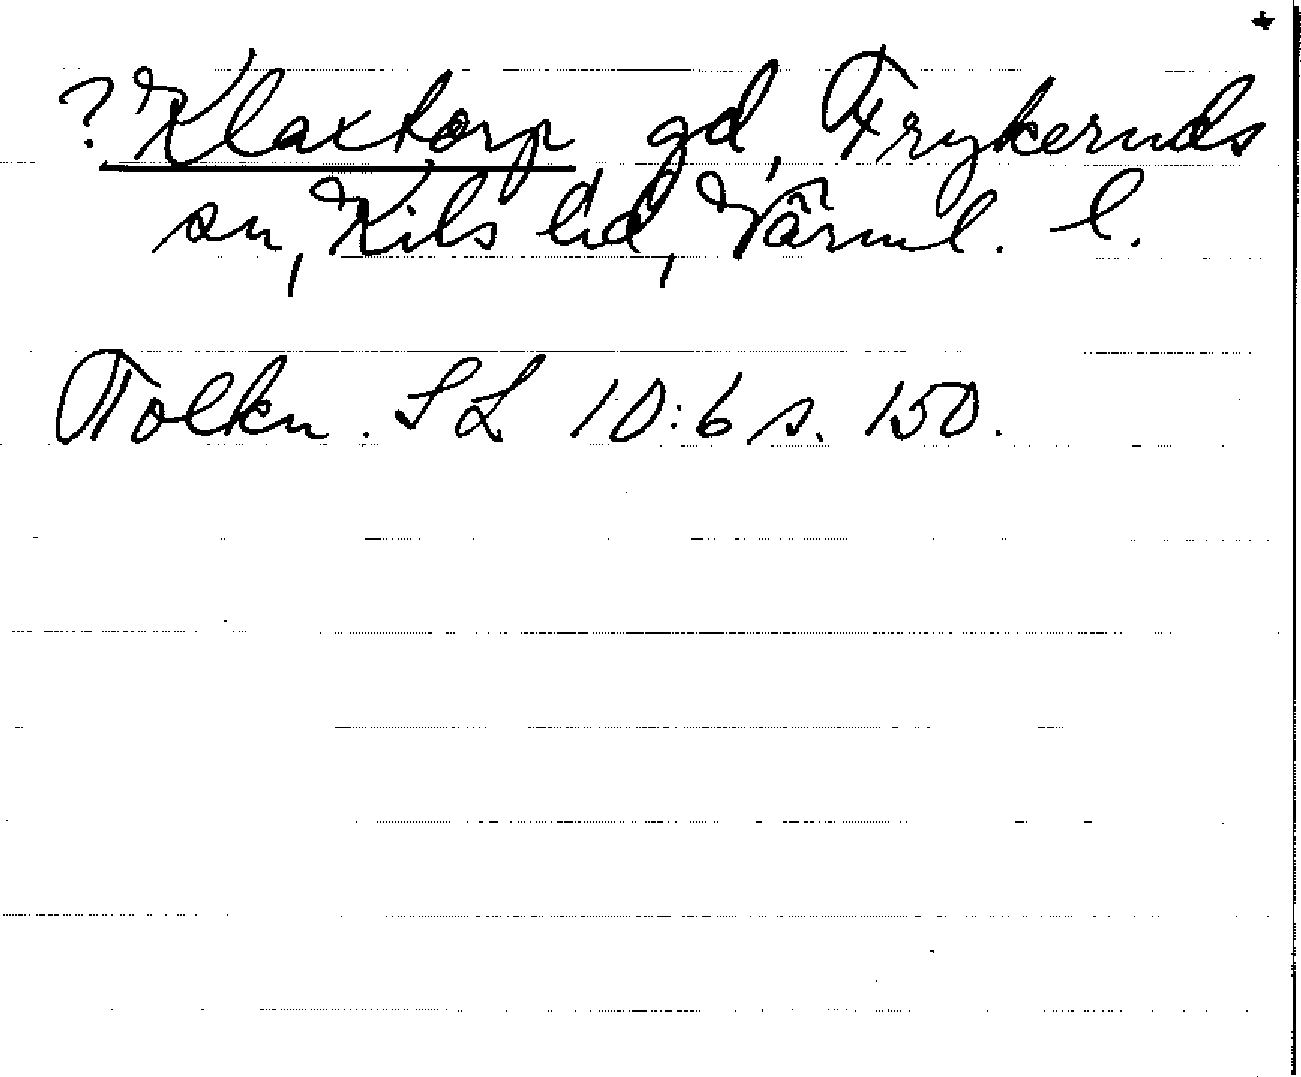 ? Klaxtorp gd, Frykeruds
sn, Kils hd, Värml. l.
Tolkn. SL 10:6 s. 150.